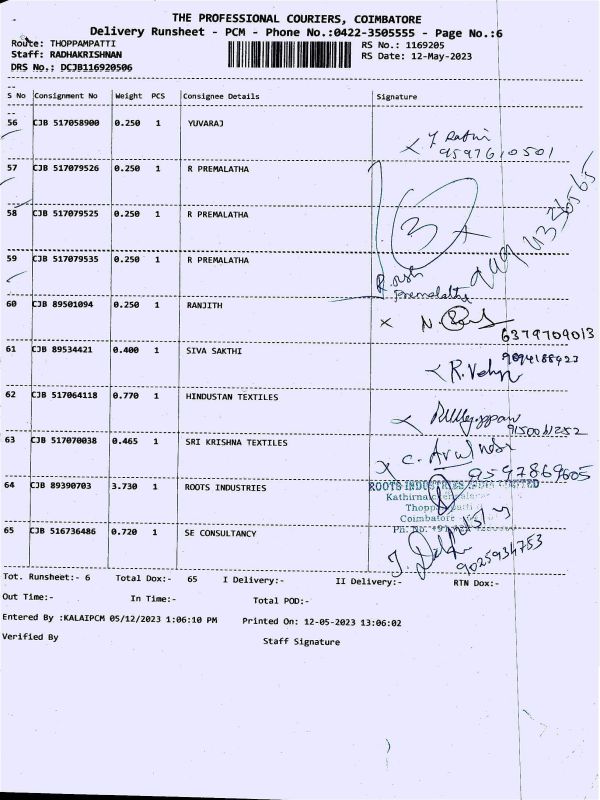 THE PROFESSIONAL COURIERS, COIMBATORE
Delivery Runsheet - PCM - Phone No.:0422-3505555 - Page No.:6
Route: THOPPAMPATTI RS No.: 1169205
Staff: RADHAKRISHNAN RS Date: 12-May-2023
DRS No.: DCJB116920506
S No Consignment No Weight PCS Consignee Details Signature
56 CJB 517058900 0.250 1 YUVARAJ
9597610501
57 CJB 517079526 0.250 1 R PREMALATHA
58 CJB 517079525 0.250 1 R PREMALATHA
3
59 CJB 517079535 0.250 1 R PREMALATHA
Premalatha
60 CJB 89501094 0.250 1 RANJITH
6379709013
61 CJB 89534421 0.400 1 SIVA SAKTHI
62 CJB 517064118 0.770 1 HINDUSTAN TEXTILES
63 CJB 517070038 0.465 1 SRI KRISHNA TEXTILES
9597869605
64 CJB 89390703 3.730 1 ROOTS INDUSTRIES
ROOTS INDUSTRIES INDIA LIMITED
Coimbatore
65 CJB 516736486 0.720 1 SE CONSULTANCY
Tot. Runsheet:- 6 Total Dox:- 65 I Delivery:- II Delivery:- RTN Dox:-
Out Time:- In Time:- Total POD:-
Entered By :KALAIPCM 05/12/2023 1:06:10 PM Printed On: 12-05-2023 13:06:02
Verified By Staff Signature